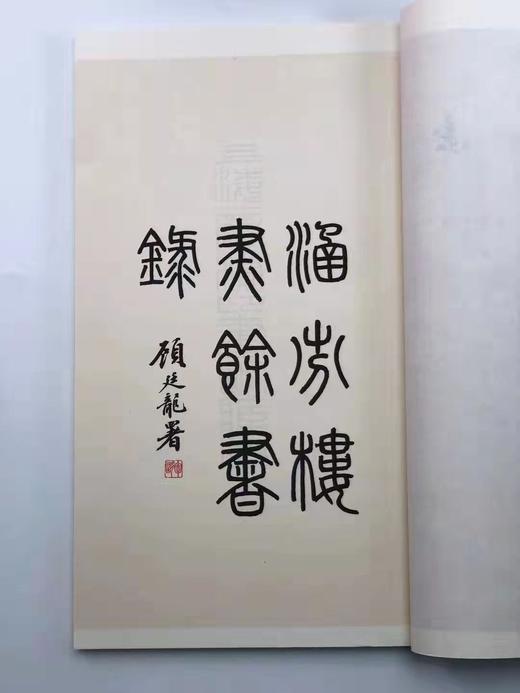 涵芬樓
燼餘書
錄
顧廷龍署